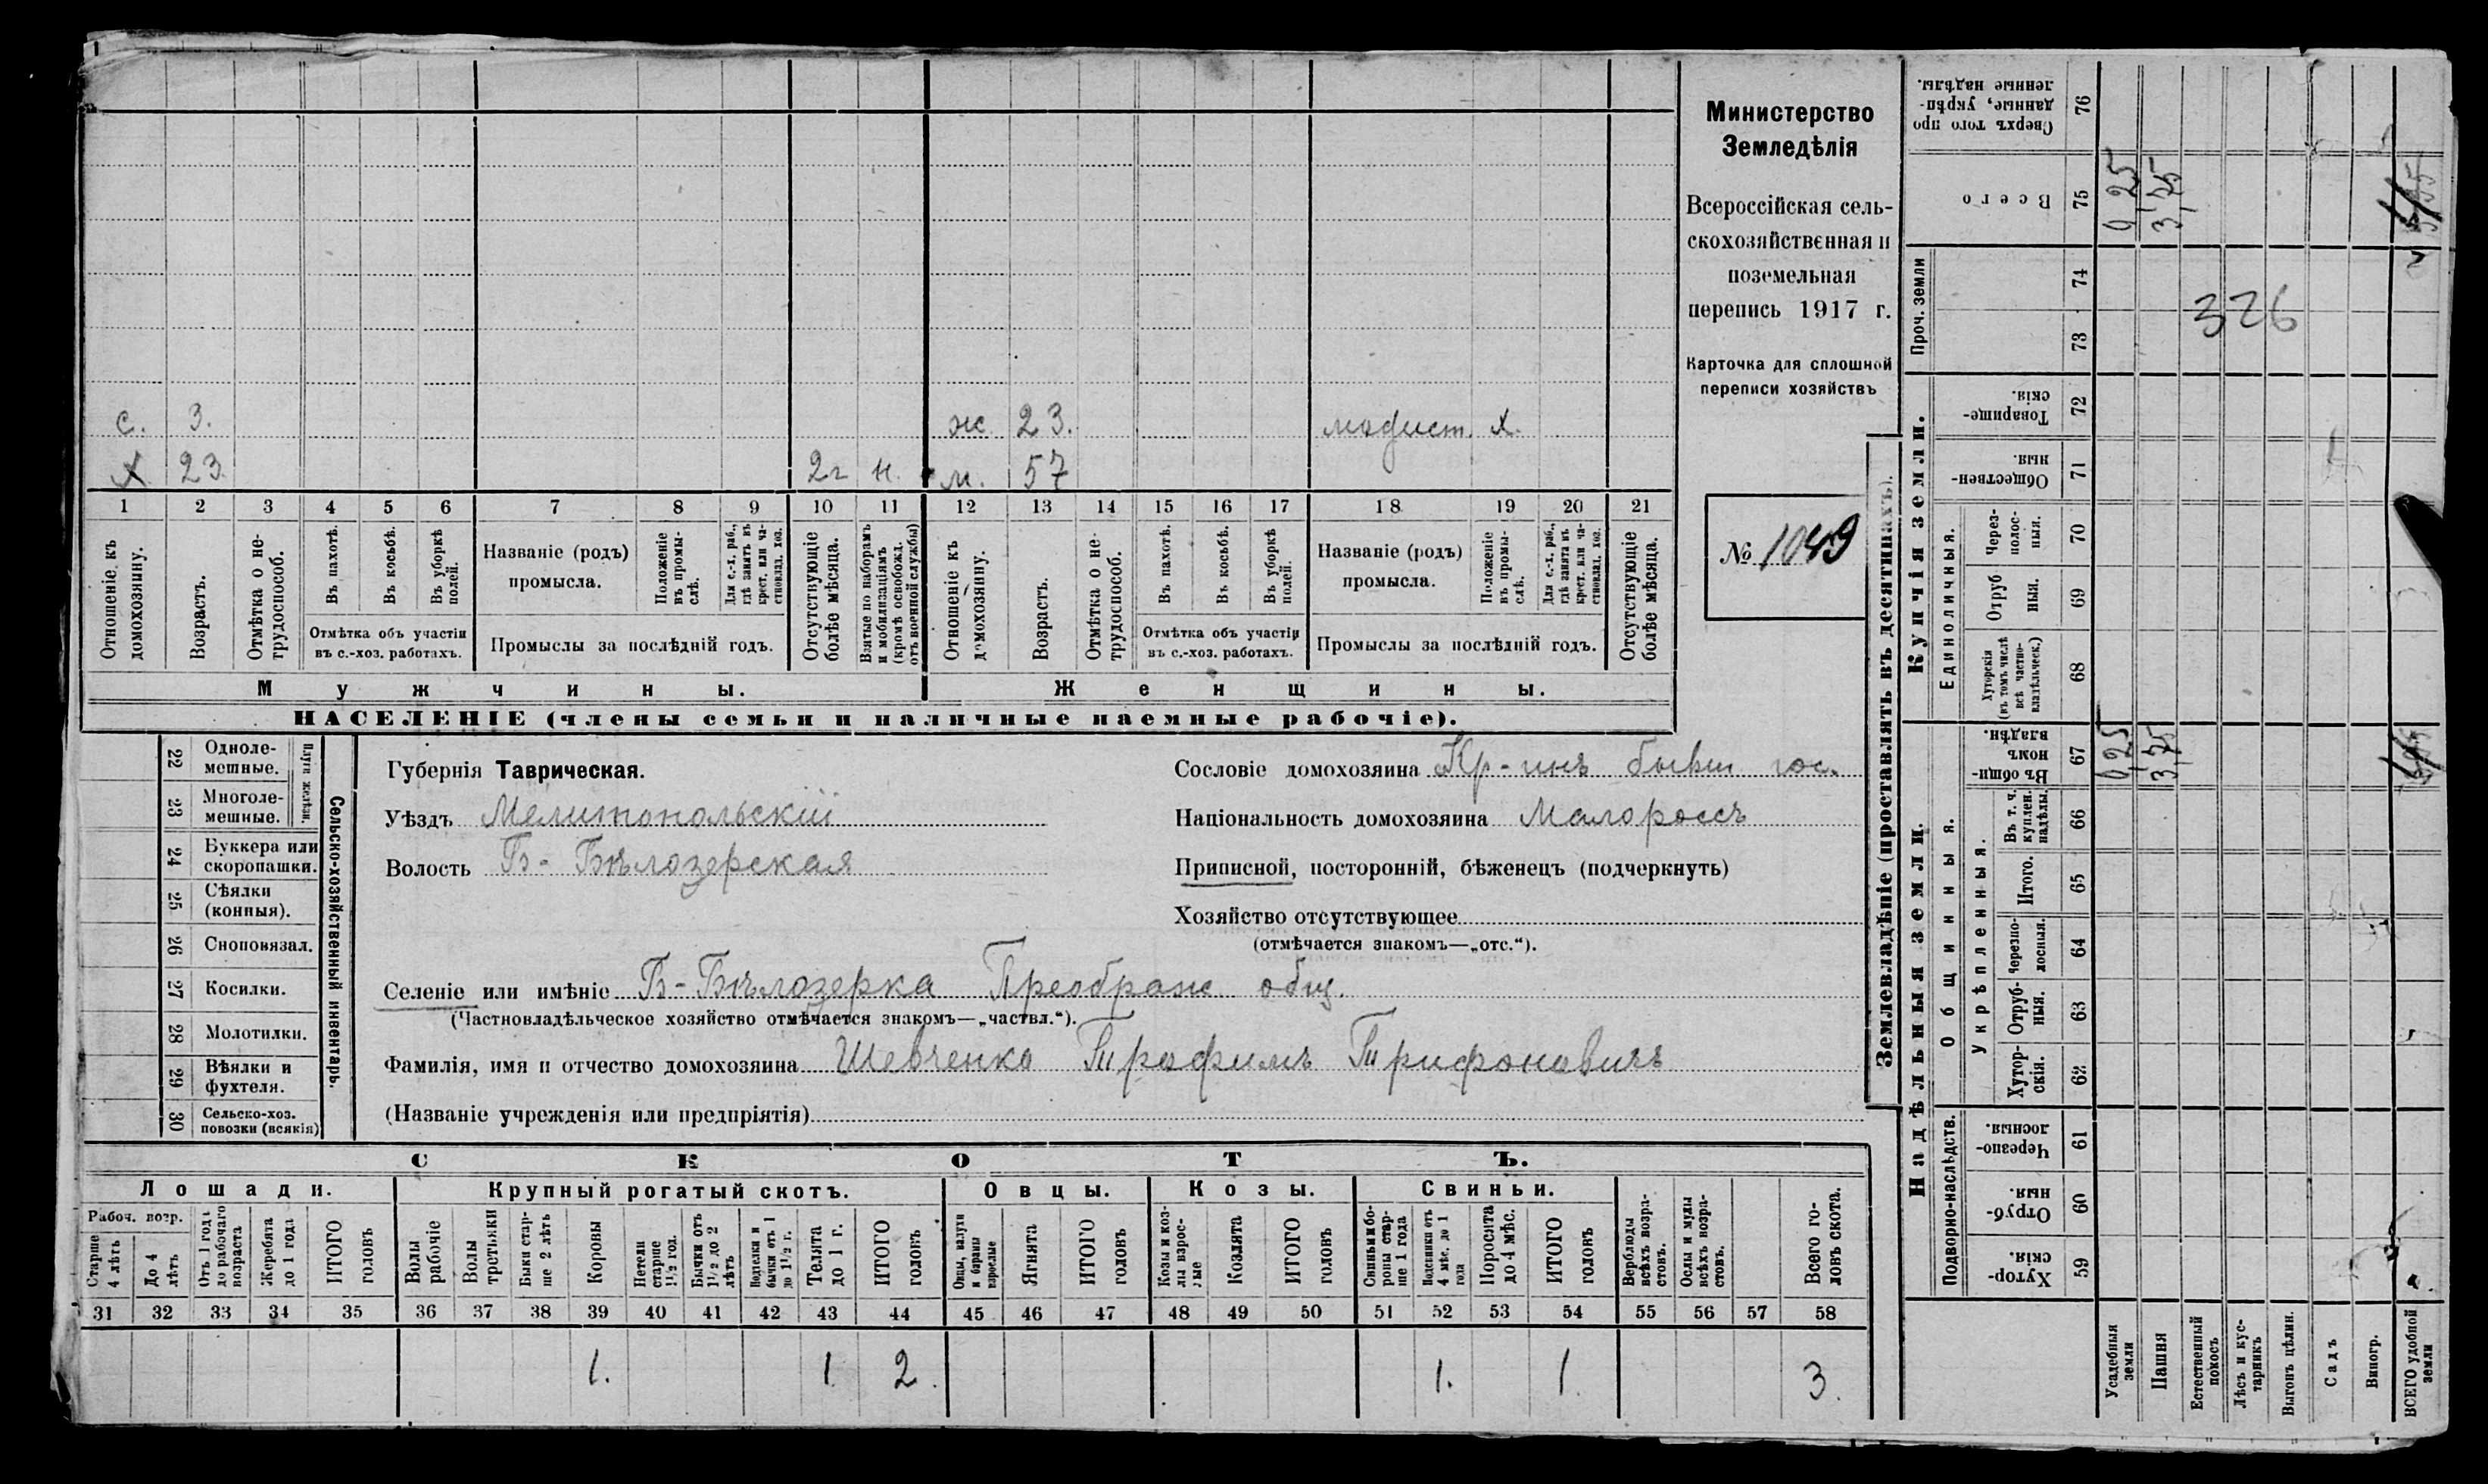 с. 3. ж 23. модист. х.
х 23. 2г н. м. 57
1 2 3 4 5 6 7 8 9 10 11 12 13 14 15 16 17 18 19 20 21
Отношеніе къ домохозяину.
Возрастъ.
Отмѣтка о нетрудоспособ.
Въ пахотѣ.
Въ косьбѣ.
Въ уборкѣ полей.
Отмѣтка объ участіи
въ с.-хоз. работахъ.
Названіе (родъ)
промысла.
Положеніе въ промыслѣ.
Для с.-х. раб., гдѣ занятъ въ крест. или частновлад. хоз.
Промыслы за послѣдній годъ.
Отсутствующіе болѣе мѣсяца.
Взятые по наборамъ и мобилизаціямъ (кромѣ освобожд. отъ военной службы)
Отношеніе къ домохозяину.
Возрастъ.
Отмѣтка о нетрудоспособ.
Въ пахотѣ.
Въ косьбѣ.
Въ уборкѣ полей.
Отмѣтка объ участіи
въ с.-хоз. работахъ.
Названіе (родъ)
промысла.
Положеніе въ промыслѣ.
Для с.-х. раб., гдѣ занята въ крест. или частновлад. хоз.
Промыслы за послѣдній годъ.
Отсутствующіе болѣе мѣсяца.
Мужчины. Женщины.
НАСЕЛЕНІЕ (члены семьи и наличные наемные рабочіе).
Министерство
Земледѣлія
Всероссійская сель-
скохозяйственная и
поземельная
перепись 1917 г.
Карточка для сплошной
переписи хозяйствъ
№ 1049
22 Одноле-
мешные.
23 Многоле-
мешные.
Плуги желѣзн.
24 Буккера или
скоропашки.
25 Сѣялки
(конныя).
26 Сноповязал.
27 Косилки.
28 Молотилки.
29 Вѣялки и
фухтеля.
30 Сельско-хоз.
повозки (всякія)
Сельско-хозяйственный инвентарь.
Губернія Таврическая.
Уѣздъ Мелитопольскій
Волость Б- Бѣлозерская
Сословіе домохозяина Кр-инъ бывш гос.
Національность домохозяина Малороссъ
Приписной, посторонній, бѣженецъ (подчеркнуть)
Хозяйство отсутствующее
(отмѣчается знакомъ—„отс.“).
Селеніе или имѣніе Б-Бѣлозерка Преображ общ.
(Частновладѣльческое хозяйство отмѣчается знакомъ—„частвл.“).
Фамилія, имя и отчество домохозяина Шевченко Трофимъ Трифоновичъ
(Названіе учрежденія или предпріятія)
СКОТЪ.
Лошади. Крупный рогатый скотъ. Овцы. Козы. Свиньи.
Рабоч. возр.
Старше 4 лѣтъ
До 4 лѣтъ
Отъ 1 года до рабочаго возраста
Жеребята до 1 года
ИТОГО головъ
Волы рабочіе
Волы третьяки
Быки старше 2 лѣтъ
Коровы
Нетели старше 1½ год.
Бычки отъ 1½ до 2 лѣтъ
Подтелки и бычки отъ 1 до 1½ г.
Телята до 1 г.
ИТОГО головъ
Овцы, валухи и бараны взрослые
Ягнята
ИТОГО головъ
Козы и козлы взрослые
Козлята
ИТОГО головъ
Свиньи и боровы старше 1 года
Подсвинки отъ 4 мѣс. до 1 года
Поросята до 4 мѣс.
ИТОГО головъ
Верблюды всѣхъ возрастовъ.
Ослы и мулы всѣхъ возрастовъ.
Всего головъ скота.
31 32 33 34 35 36 37 38 39 40 41 42 43 44 45 46 47 48 49 50 51 52 53 54 55 56 57 58
1. 1 2. 1. 1. 3.
Землевладѣніе (проставлять въ десятинахъ).
Надѣльныя земли. Купчія земли.
Подворно-наслѣдств.
Общинныя.
Укрѣпленныя.
Единоличныя.
Проч. земли
59 Хуторскія.
60 Отрубныя.
61 Черезполосныя.
62 Хуторскія.
63 Отрубныя.
64 Черезполосныя.
65 Итого.
66 Въ т. ч. куплен. надѣлы.
67 Въ общинномъ владѣн.
68 Хуторскія (въ томъ числѣ всѣ частновладѣльческ.)
69 Отрубныя.
70 Черезполосныя.
71 Общественныя.
72 Товарищескія.
73
74
75 Всего
76 Сверхъ того проданные, укрѣпленные надѣлы.
Усадебныя земли 0,25 0,25
Пашня 3,25 3,25
Естественный покосъ
Лѣсъ и кустарникъ
Выгонъ цѣлин.
Садъ
Виногр.
ВСЕГО удобной земли
326